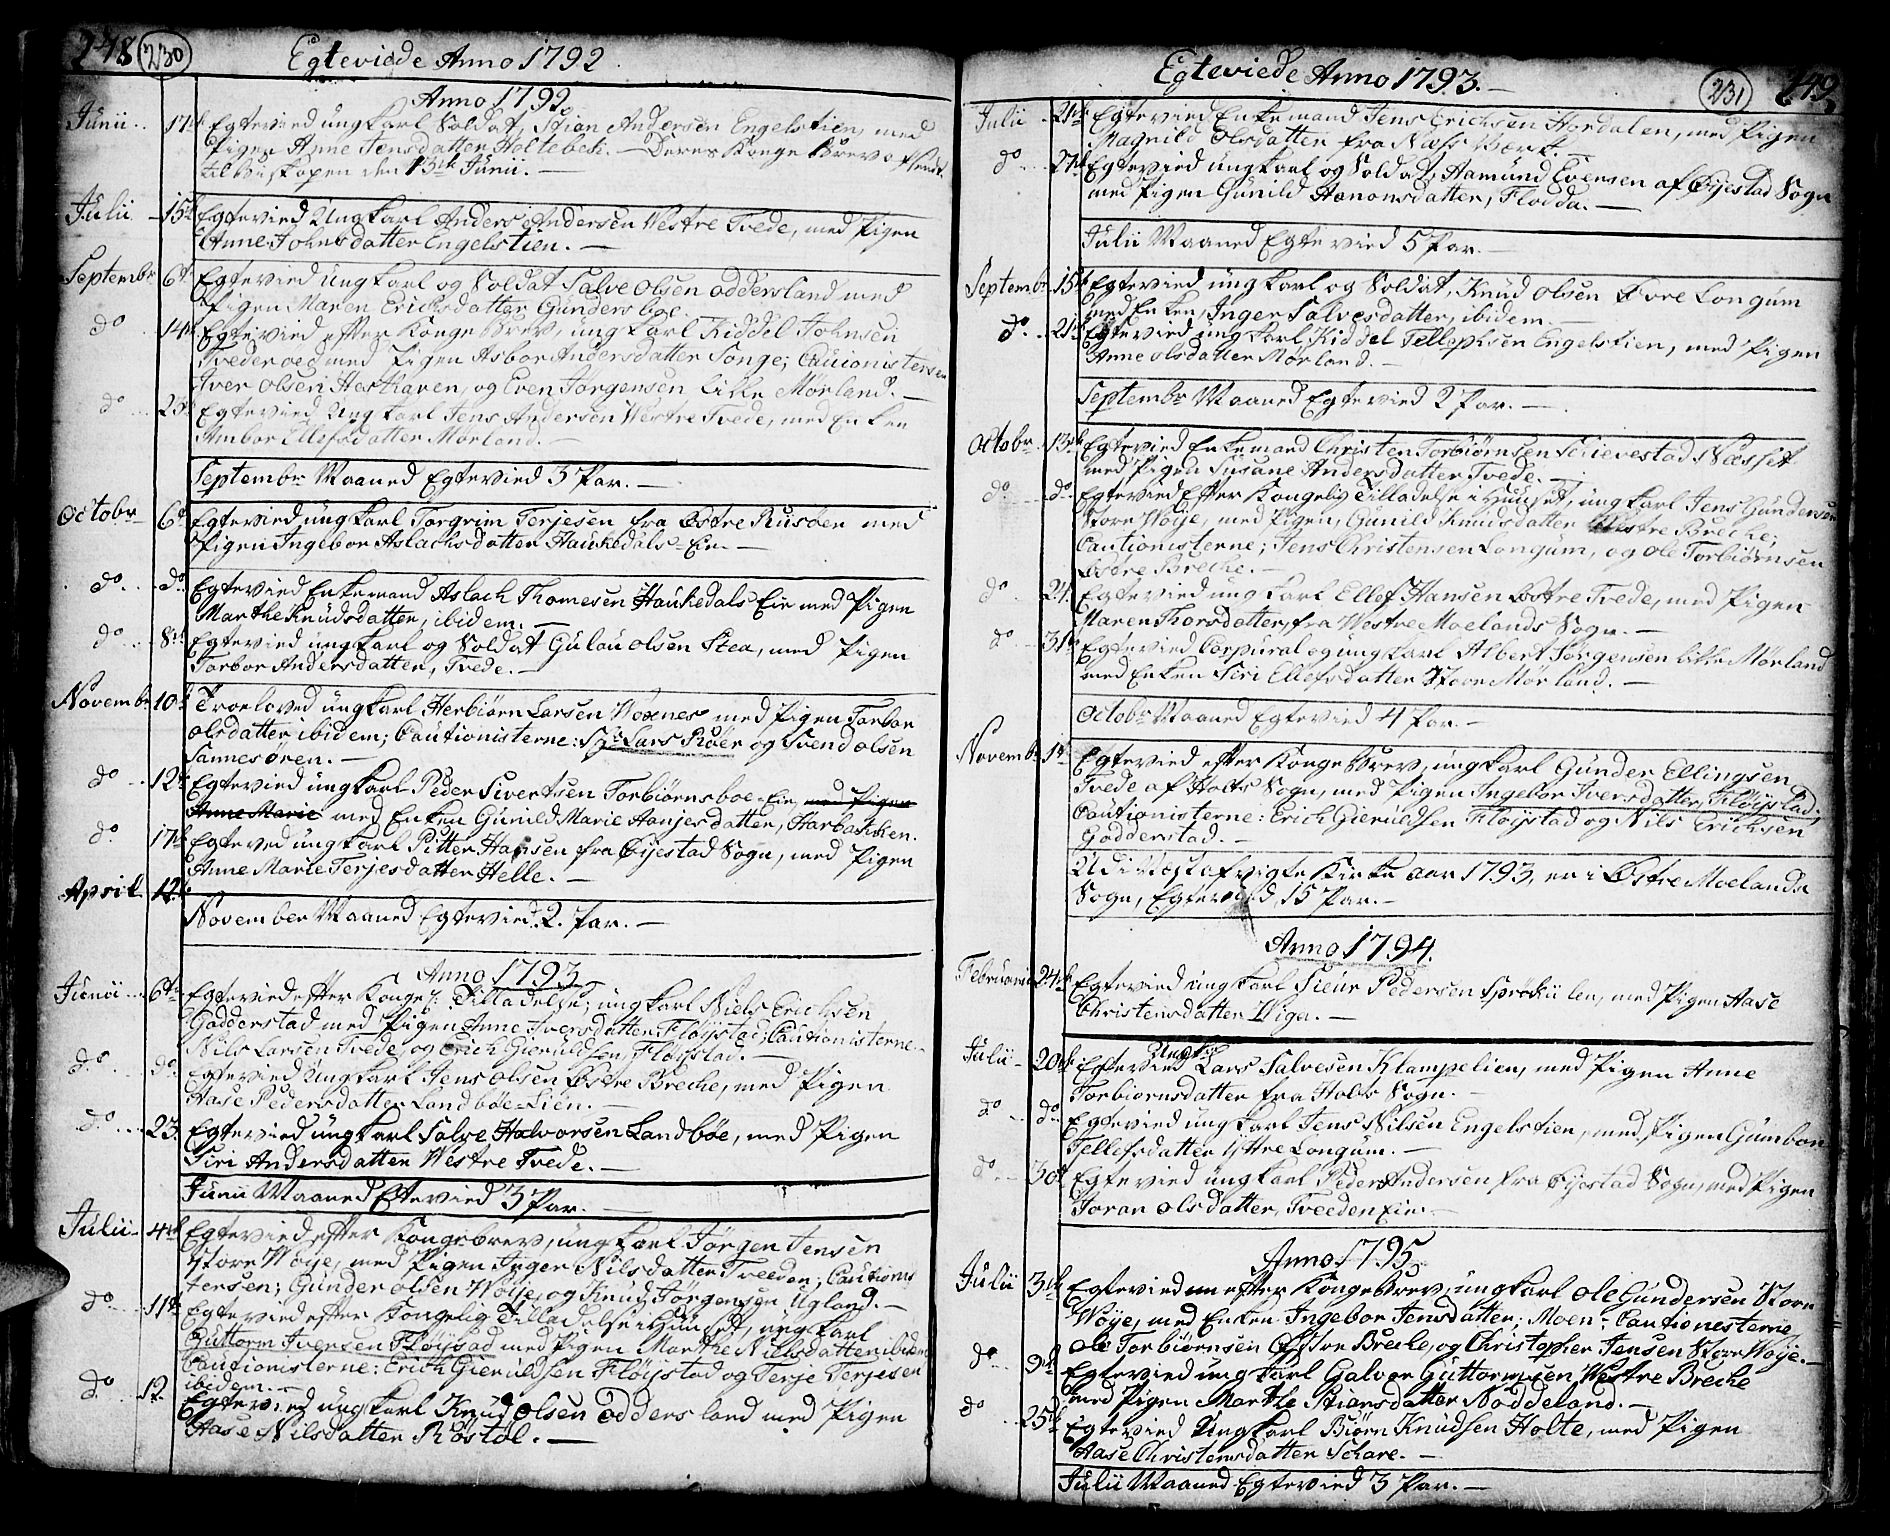 248 230 Egteviede Anno 1792.
Anno 1792
Junii 17de Egtevied ungkarl Soldat, Stian Andersen Engelstien, med
Pigen Anne Jensdatter Holtebek. – Deres Konge Brev afsendt
til Biskopen den 13de Junii. –
Julii 15de Egtevied Ungkarl Anders Andersen Westre Tvede, med Pigen
Anne Johnsdatter Engelstien. –
Septembr 6te Egtevied ungkarl og Soldat Salve Olsen Oddersland med
Pigen Maren Ericksdatter Gundersboe.
do 14de Egtevied efter Konge Brev, ungkarl Kiddel Johnsen
Tvederoed med Pigen Asbor Andersdatter Songe; Cautionisterne
Iver Olsen Hesthaven, og Even Jørgensen Litle Mørland. –
do 23 Egtevied Ungkarl Jens Andersen Westre Tvede, med Enken
Ambor Ellefsdatter Mørland. –
Septembr Maaned Egtevied 3 Par. –
Octobr 6te Egtevied ungkarl Torgrim Terjesen fra Østre Riisøen med
Pigen Ingebor Aslachsdatter Haukedals-Eie. –
do do Egtevied Enkemand Aslach Thomesen Haukedals Eie med Pigen
Marthe Knudsdatter, ibidem. –
do 8de Egtevied ungkarl og Soldat Gulou Olsen Stea, med Pigen
Torbor Andersdatter, Tvede. –
Novembr 10de Troeloved ungkarl Herbiørn Larsen Woxnes med Pigen Torbor
Olsdatter ibidem; Cautionisterne: Sr Lars Röer og Svend Olsen
Sannesören. –
do 12te Egtevied ungkarl Peder Sivertsen Torbiørnsboe-Eie, med Pigen
Anne Marie med Enken Gunild Marie Hansesdatter, Harbakken.
do 17de Egteved ungkarl Pitter Hansen fra Öjestad Sogn, med Pigen
Anne Marie Terjesdatter Helle. –
April 12te
November Maaned Egtevied 2. Par. –
Anno 1793
Junii 6te Egtevied efter Konge: Tilladelse; ungkarl Niels Erichsen
Godderstad med Pigen Anne Iversdatter Fløystad; Cautionisterne
Nils Larsen Tvede og Erich Gieruldsen, Fløystad. –
do do Egtevied Ungkarl Jens Olsen Østre Breche, med Pigen
Aase Pedersdatter Landbøe-Lien. –
do 23. Egtevied ungkarl Salve Halvorsen Landbøe, med Pigen
Siri Andersdatter Westre Tvede. –
Junii Maaned Etevied 3 Par. –
Julii 4de Egtevied efter Kongebrev, ungkarl Jörgen Jensen
Store Woije, med Pigen Inger Nilsdatter Treeden; Cautionis
tersen; Gunder Olsen Woije, og Knud Jörgensen Ugland. –
do 11te Egtevied efter Kongelig Tilladelse i Huuset, ungkarl
Guttorm Ivensen Fløystad med Pigen Marthe Nillsdatter ibidem
Cautionisterne: Erich Gieruldsen Fløystad og Terje Terjesen
ibidem. –
do 12 Egtevied ungkarl Knud Olsen Oddersland med Pigen
Aase Nilsdatter Røstøl. –
Egteviede Anno 1793. – 231 249
Julii 21de Egtevied Enkemand Jens Erichsen Hordalen, med Pigen
Magnild Olsdatter fra Næss Værk. –
do 27de Egtevied ungkarl og Soldat, Aamund Evensen af Øijestad Sogn
med Pigen Gunild Haaonsdatter, Flodda. –
Julii Maaned Egtevied 5 Par. –
Septembr 15de Egtevied ungkarl og Soldat, Knud Olsen Övre Longum
med Enken, Inger Salvesdatter, ibidem. –
do 21de Egtevied ungkarl, Kiddel Tellephsen Engelstien, med Pigen
Anne Olsdatter Mörland. –
Septembr Maaned Egtevied 2 Par. –
Octobr 13de Egtevied Enkemand Christen Torbiörnsen Schievestad Næsset
med Pigen Susane Andersdatter Tvede. –
do do Egtevied Efter Kongelig Tilladelse i Huuset, ungkarl Jens Gundersen
Store Woije, med Pigen, Gunild Knudsdatter Westre Breche;
Cautionisterne; Jens Christensen Longum, og Ole Torbiørnsen
Östre Breche. –
do 24. Egtevied ungkarl Ellef Hansen Østre Tvede, med Pigen
Maren Thorsdatter, fra Westre Moelands Sogn. –
do 31te Egtevied Corpural og ungkarl Albert Jørgensen litle Mørland
med Enken Siri Ellefsdatter Store Mørland. –
Octobr Maaned Egtevied 4 Par. –
Novembr 1te Egtevied efter Konge Brev, ungkarl Gunder Ellingsen
Tvede af Holts Sogn, med Pigen Ingebor Iversdatter Fløystad.
Cautionisterne: Erich Gieruldsen Fløystad og Nils Erichsen
Godderstad. –
Udi Næstafvigte Kirke aar 1793, er i Østre Moelands
Sogn, Egtevied, 15 Par. –
Anno 1794.
Februarii 24de Egtevied ungkarl Siur Pedersen Sprøkiilen, med Pigen Aase
Christensdatter Wiger. –
Ungk:
Julii 20de Egtevied Lars Salvesen Klampelien, med Pigen Anne
Torbiornsdatter fra Holts Sogn. –
do do Egtevied ungkarl Jens Nilsen Engelstien, med Pigen Gumbor
Tellefsdatter ijttre Longum. –
do 30te Egtevied ungkarl Peder Andersen fra Öijestad Sogn, med Pigen
Joran Olsdatter, Treeden Eie. –
Anno 1795
Julii 3de Egtevied efter Kongebrev, ungkarl Ole Gundersen Store
Wøye, med Enken Ingebor Jensdatter; Moen: Cautionesterne
Ole Torbiørnsen Østre Breche, og Christopher Jensen Store Woije. –
do 9de Egtevied ungkarl Galvor Guttormsen Westre Breche
med Pigen Marthe Stiansdatter Nøddeland. –
do 25de Egtevied Ungkarl Biörn Knudsen Holte, med Pigen
Aase Christensdatter Schare. –
Julii Maaned Egtevied 3 Par. –